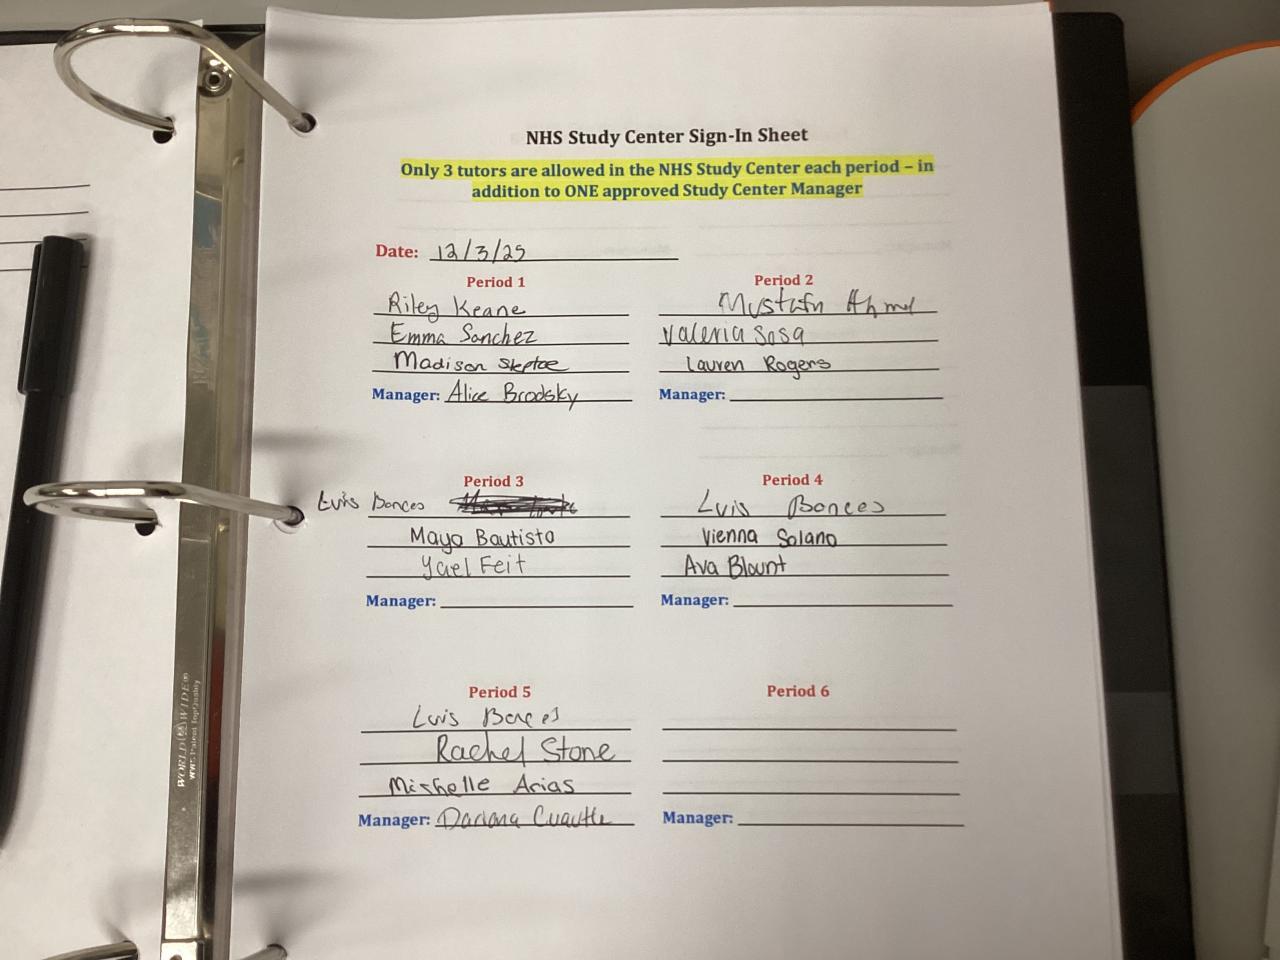 NHS Study Center Sign-In Sheet
Only 3 tutors are allowed in the NHS Study Center each period – in
addition to ONE approved Study Center Manager
Date: 12/3/25
Period 1
Riley Keane
Emma Sanchez
Madison
Manager: Alice Brodsky
Period 2
Mustafa
Valeria Sosa
Lauren Rogers
Manager:
Period 3
Luis Bonces
Maya Bautista
Yael Feit
Manager:
Period 4
Luis Bonces
Vienna Solano
Ava Blount
Manager:
Period 5
Luis Bonces
Rachel Stone
Mishelle Arias
Manager: Dariana Cuautle
Period 6
Manager:
WORLD WIDE